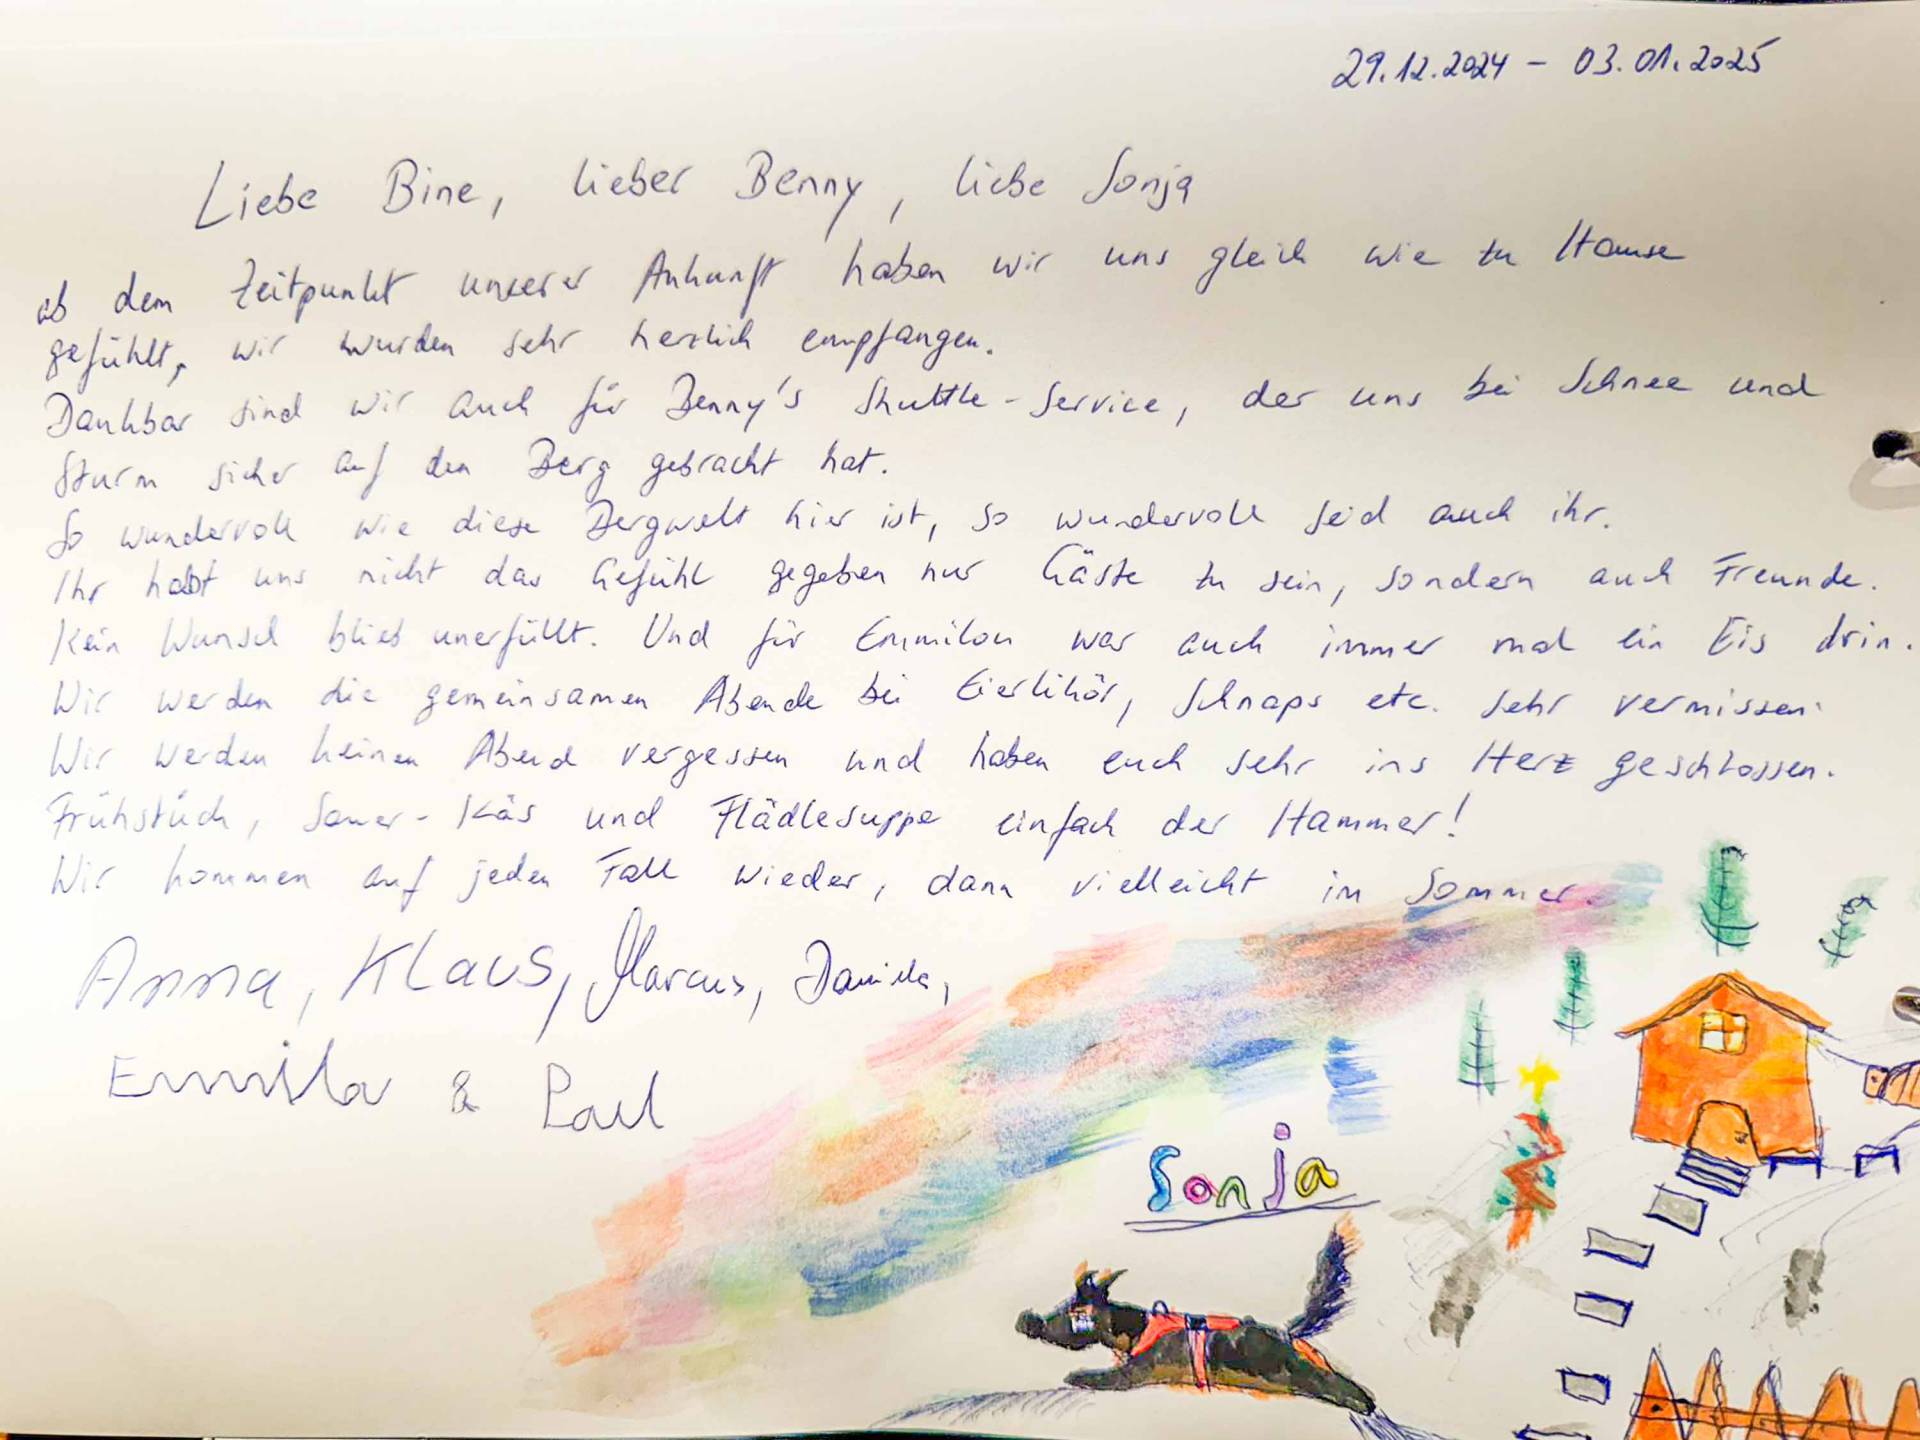 29.12.2024 - 03.01.2025
Liebe Bine, lieber Benny, liebe Sonja
ab dem Zeitpunkt unserer Ankunft haben wir uns gleich wie zu Hause
gefühlt, wir wurden sehr herzlich empfangen.
Dankbar sind wir auch für Benny's Shuttle-Service, der uns bei Schnee und
Sturm sicher auf den Berg gebracht hat.
So wundervoll wie diese Bergwelt hier ist, so wundervoll seid auch ihr.
Ihr habt uns nicht das Gefühl gegeben nur Gäste zu sein, sondern auch Freunde.
Kein Wunsch blieb unerfüllt. Und für Emmilou war auch immer mal ein Eis drin.
Wir werden die gemeinsamen Abende bei Eierlikör, Schnaps etc. sehr vermissen.
Wir werden keinen Abend vergessen und haben euch sehr ins Herz geschlossen.
Frühstück, Sauer-Käs und Flädlesuppe einfach der Hammer!
Wir kommen auf jeden Fall wieder, dann vielleicht im Sommer.
Anna, Klaus, Marcus, Daniela,
& Paul
Sonja